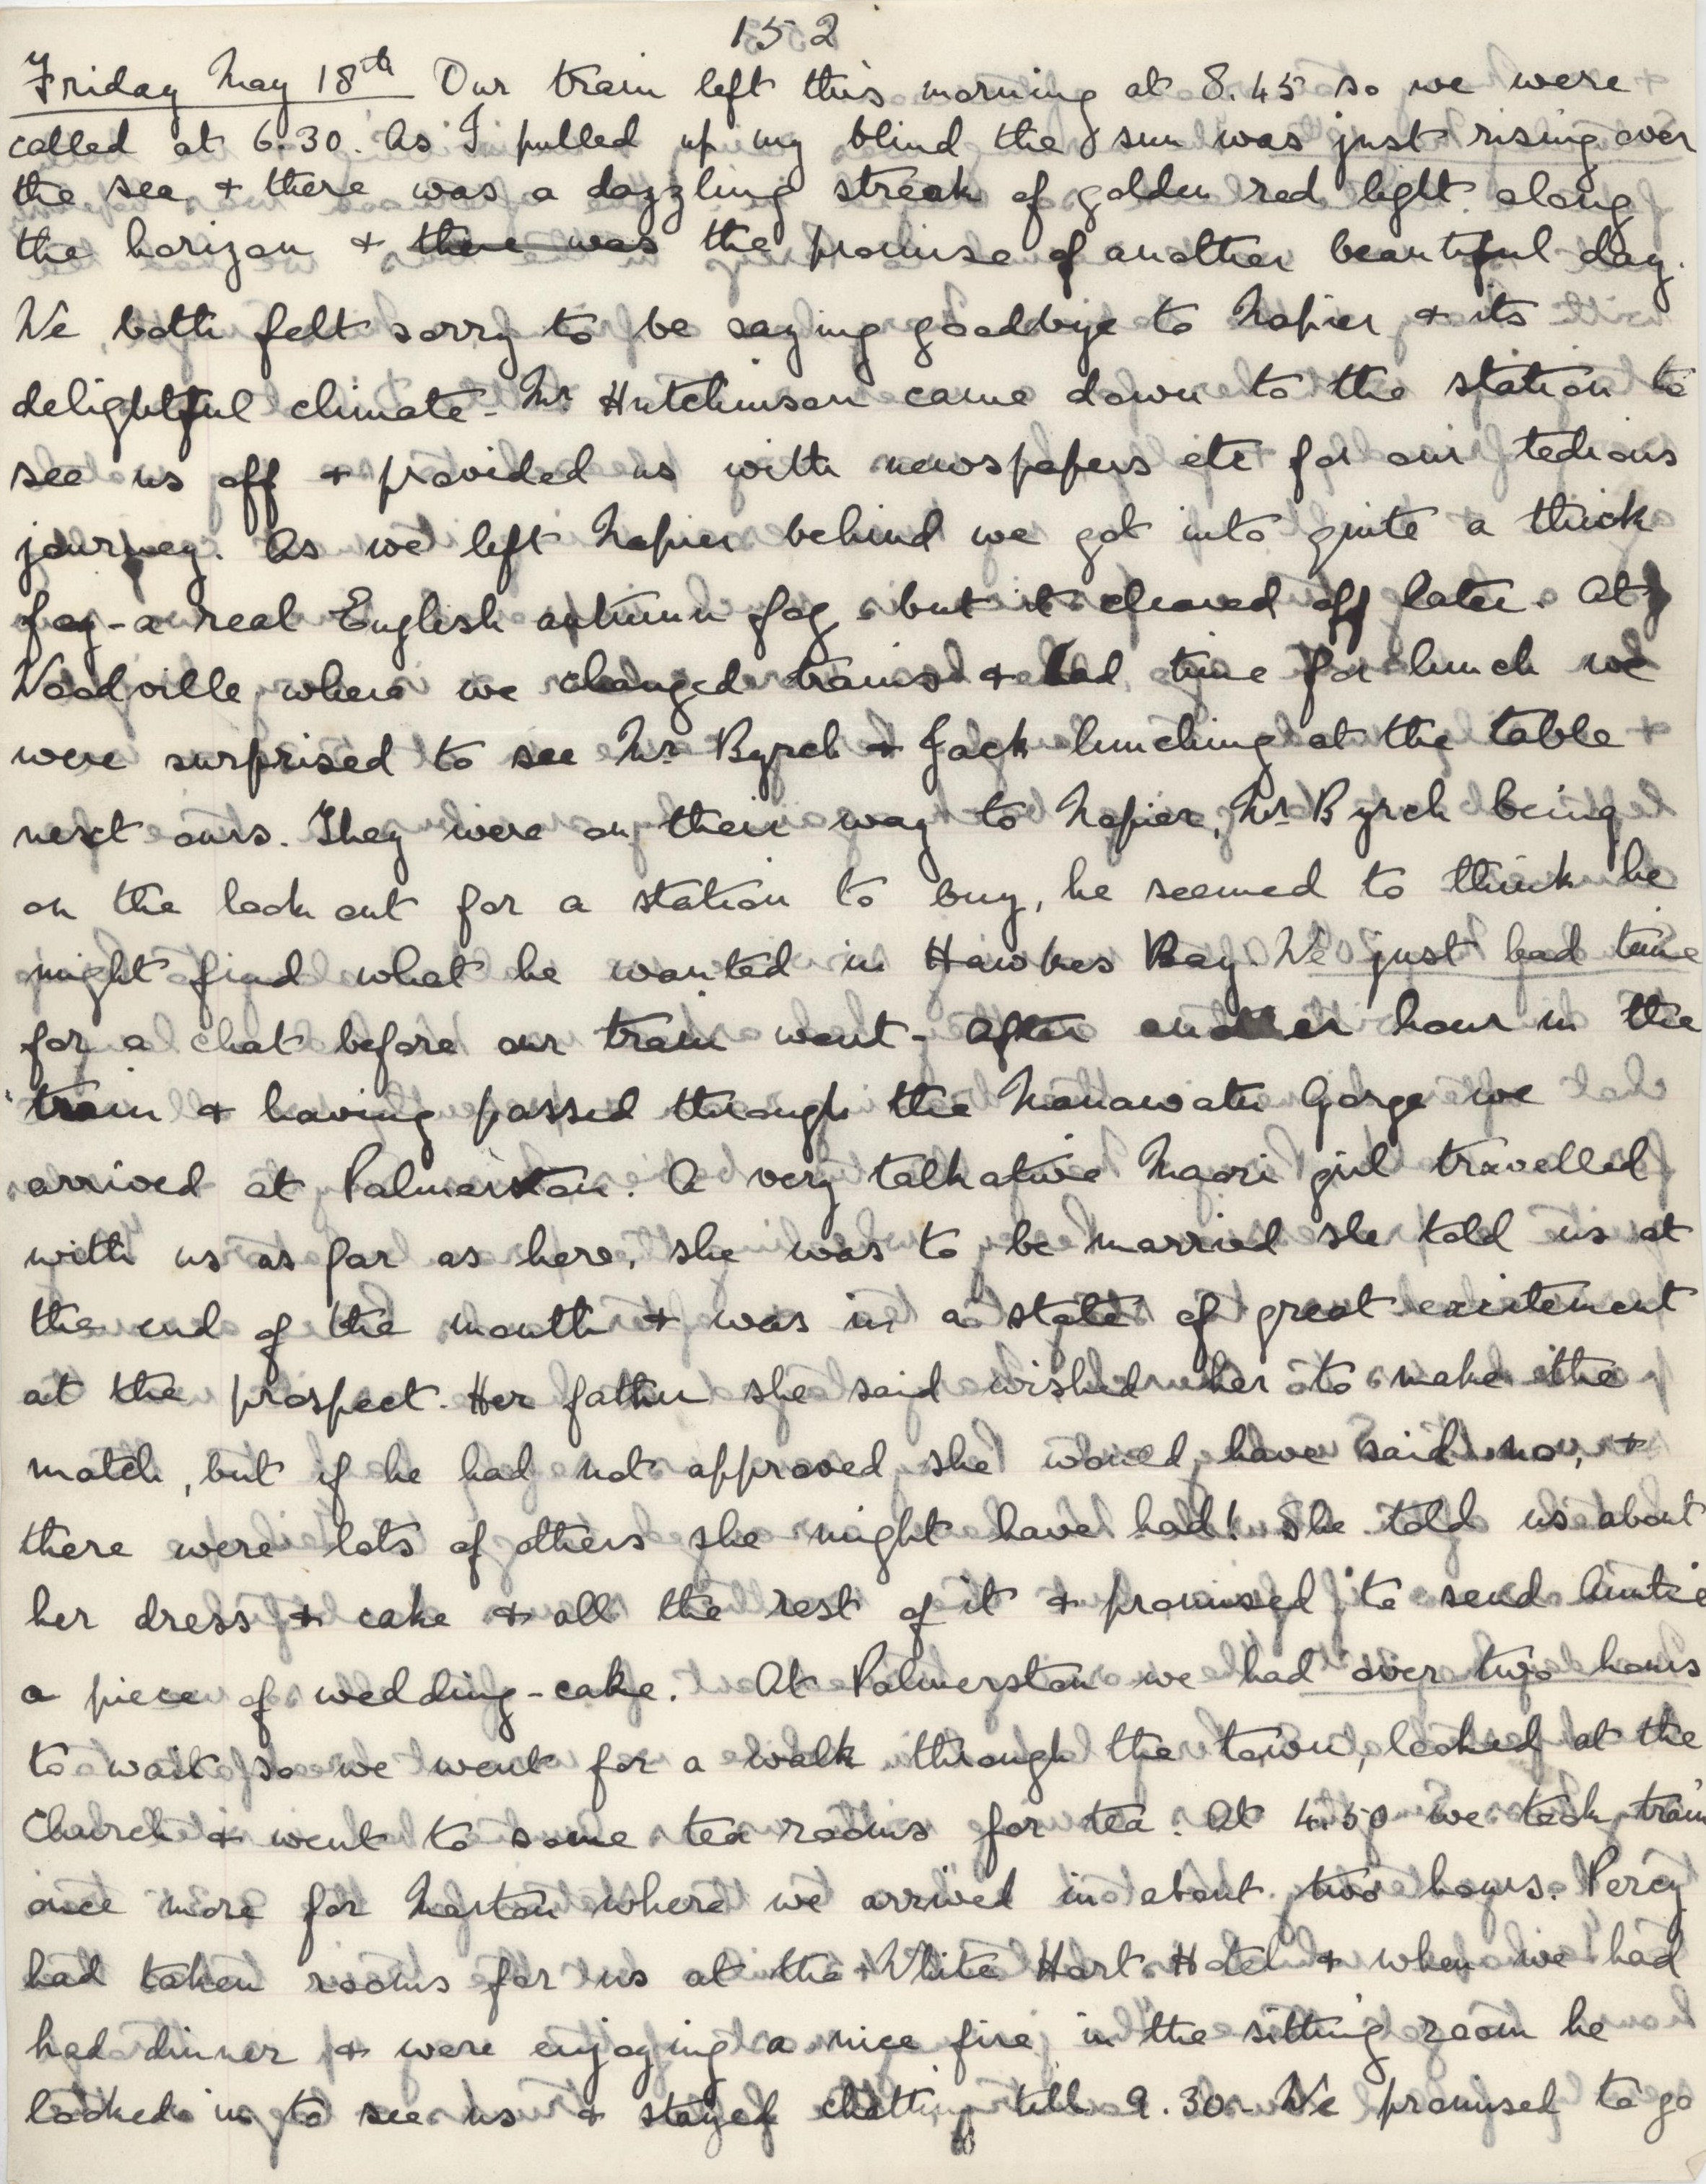 152
Friday May 18th Our train left this morning at 8.45 so we were
called at 6.30. As I pulled up my blind the sun was just rising over
the sea & there was a dazzling streak of golden red light along
the horizon & there was the promise of another beautiful day.
We both felt sorry to be saying goodbye to Napier & its
delightful climate - Mr Hutchinson came down to the station to
see us off & provided us with newspapers etc for our tedious
journey. As we left Napier behind we got into quite a thick
fog - a real English autumn fog but it cleared off later. At
Woodville where we changed trains & had time for lunch we
were surprised to see Mr Byrch & Jack lunching at the table
next ours. They were on their way to Napier, Mr Byrch being
on the look out for a station to buy, he seemed to think he
might find what he wanted in Hawkes Bay. We just had time
for a chat before our train went - After another hour in the
train & having passed through the Manawatu Gorge we
arrived at Palmerston. A very talkative Maori girl travelled
with us as far as here, she was to be married she told us at
the end of the month & was in a state of great excitement
at the prospect. Her father she said wished her to make the
match, but if he had not approved she would have said no, &
there were lots of others she might have had! She told us about
her dress & cake & all the rest of it & promised to send Auntie
a piece of wedding-cake. At Palmerston we had over two hours
to wait so we went for a walk through the town, looked at the
Church & went to some tea rooms for tea. At 4.50 we took train
once more for Marton where we arrived in about two hours. Percy
had taken rooms for us at the White Hart Hotel & when we had
had dinner & were enjoying a nice fire in the sitting room he
looked in to see us & stayed chatting till 9.30 - We promised to go